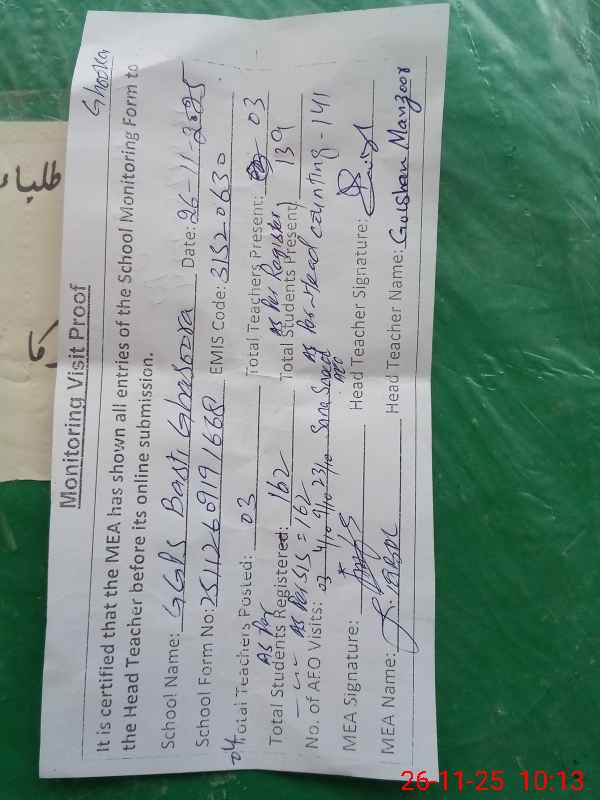 Ghooka
Monitoring Visit Proof
It is certified that the MEA has shown all entries of the School Monitoring Form to
the Head Teacher before its online submission.
School Name: GGPS Basti Date: 26-11-2025
School Form No: EMIS Code: 31320630
04 Total Teachers Posted: 03 Total Teachers Present: 03
As Per As Per Register
Total Students Registered: 162 Total Students Present: 139
As Per SIS = 162 As Per Head counting - 141
No. of AEO Visits: 03 4/10 9/10 23/10 Sana Saeed
AEO
MEA Signature: Head Teacher Signature:
MEA Name: Head Teacher Name: Gulshan Manzoor
طلباء
کا
26-11-25 10:13